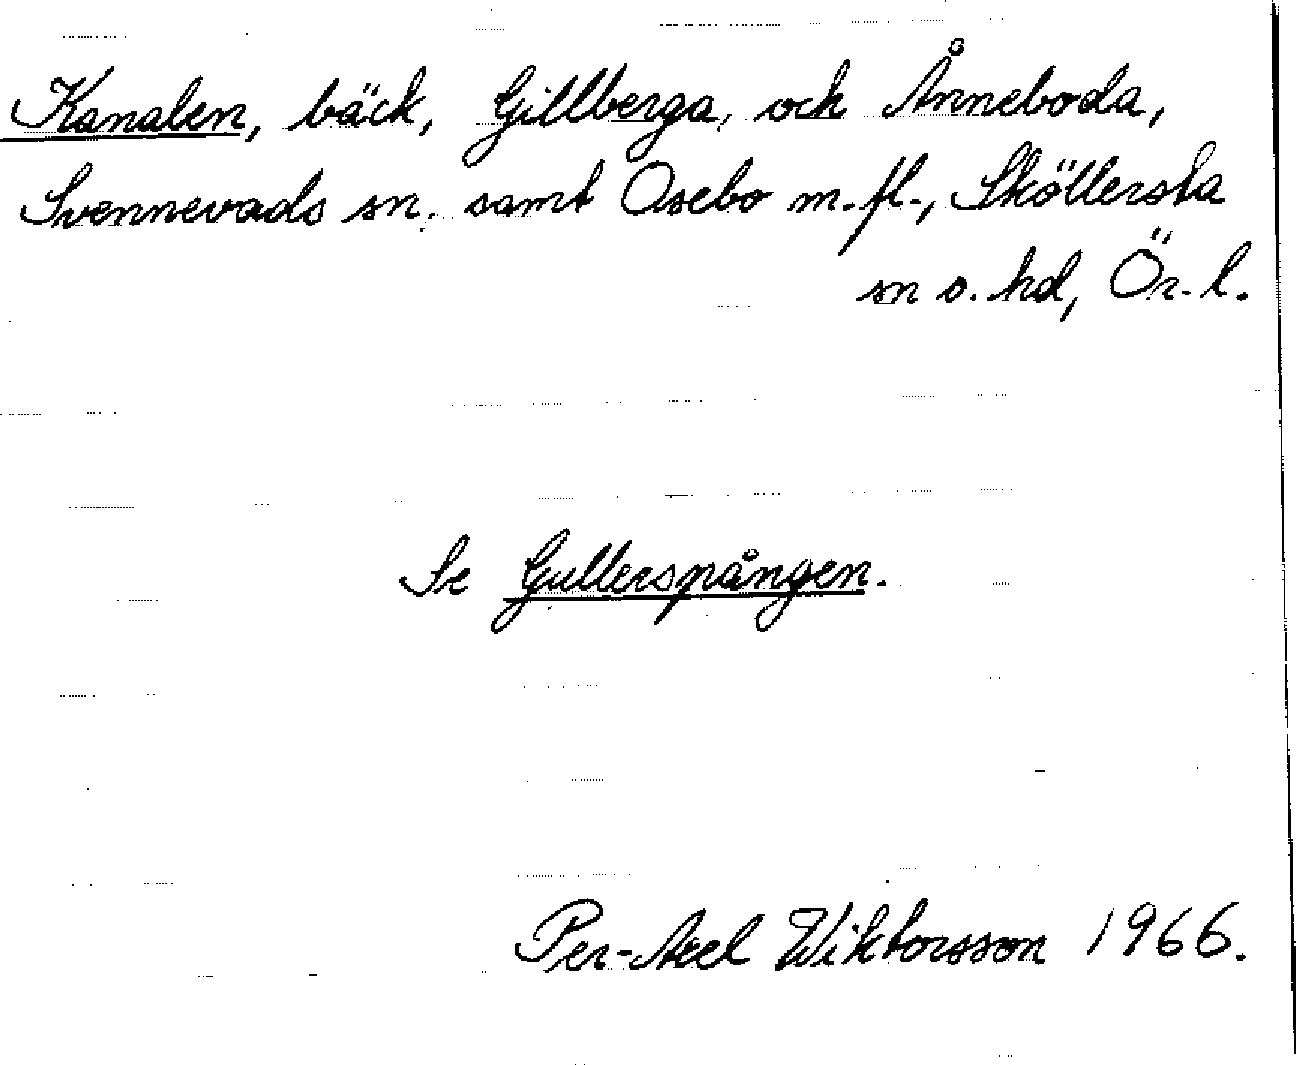 Kanalen, bäck, Gillberga, och Ånneboda,
Svennevads sn. samt Åsebo m.fl., Sköllersta
sn o. hd, Ör. l.
Se Gullerspången.
Per-Axel Wiktorsson 1966.